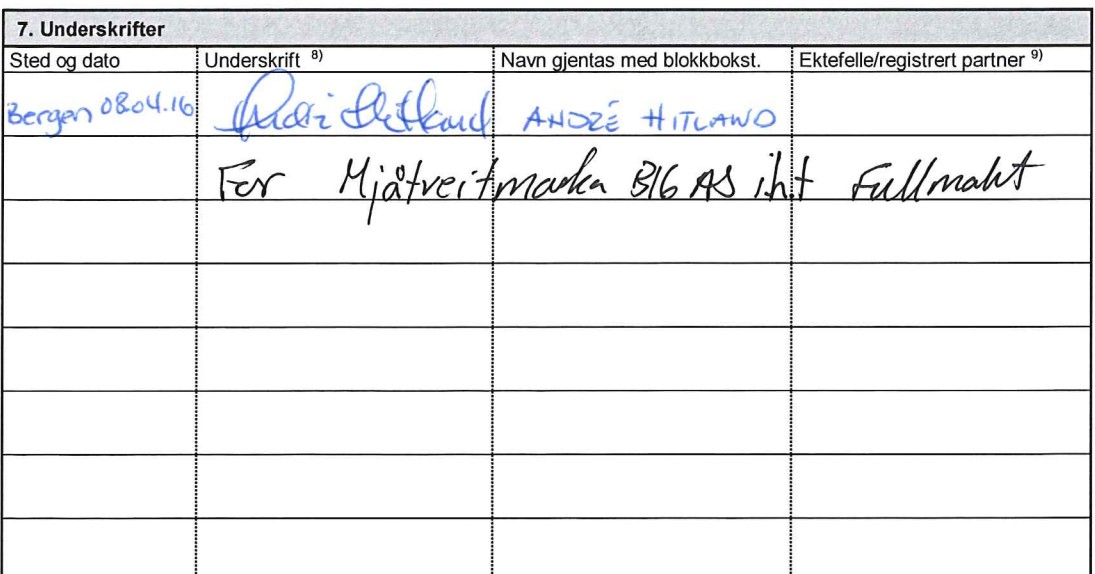 7. Underskrifter
Sted og dato Underskrift 8) Navn gjentas med blokkbokst. Ektefelle/registrert partner 9)
Bergen 08.04.16 André Hitland ANDRÉ HITLAND
For Mjåtveitmarka B16 AS iht Fullmakt